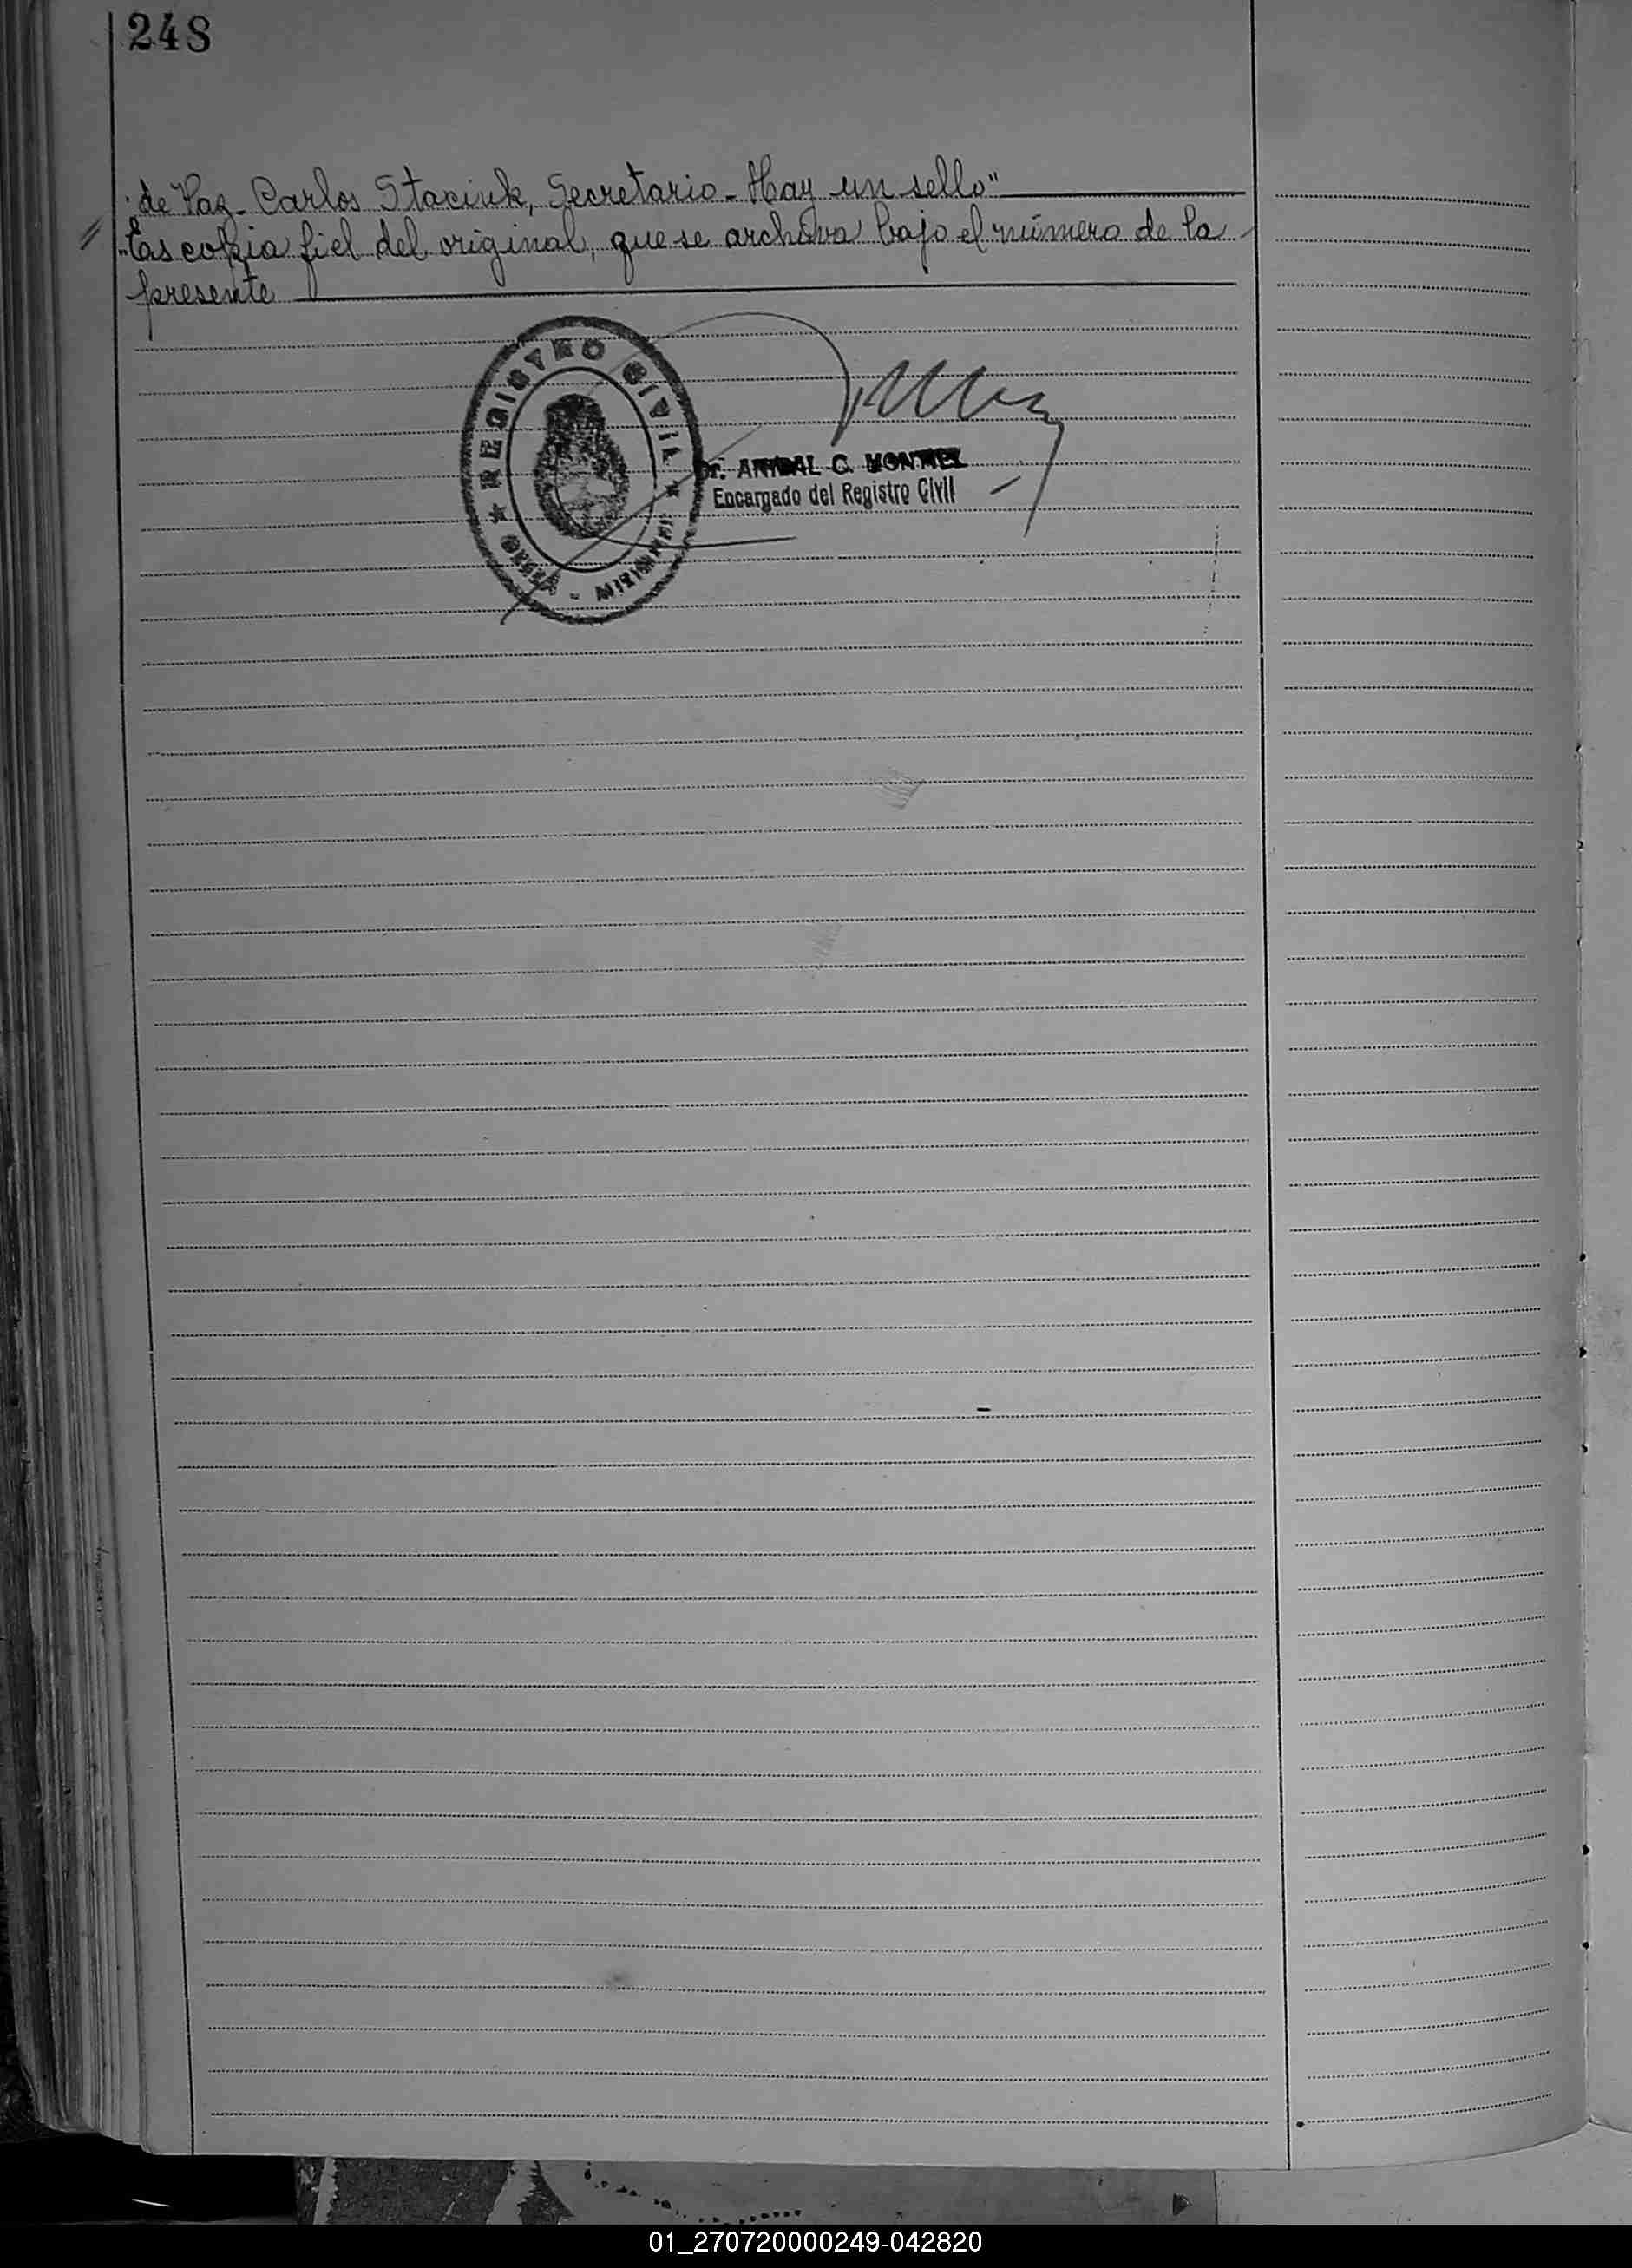 248
de Paz - Carlos Staciuk, Secretario - Hay un sello"
Es copia fiel del original, que se archiva bajo el número de la
presente
REGISTRO CIVIL
OBERÁ - MISIONES
Dr. ANIBAL C. MONTIEL
Encargado del Registro Civil
01_270720000249-042820